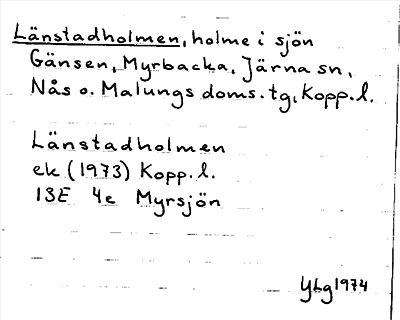 Länstadholmen, holme i sjön
Gänsen, Myrbacka, Järna sn,
Nås o. Malungs doms.tg, Kopp.l.
Länstadholmen
ek (1973) Kopp.l.
13E 4e Myrsjön
YLg 1974